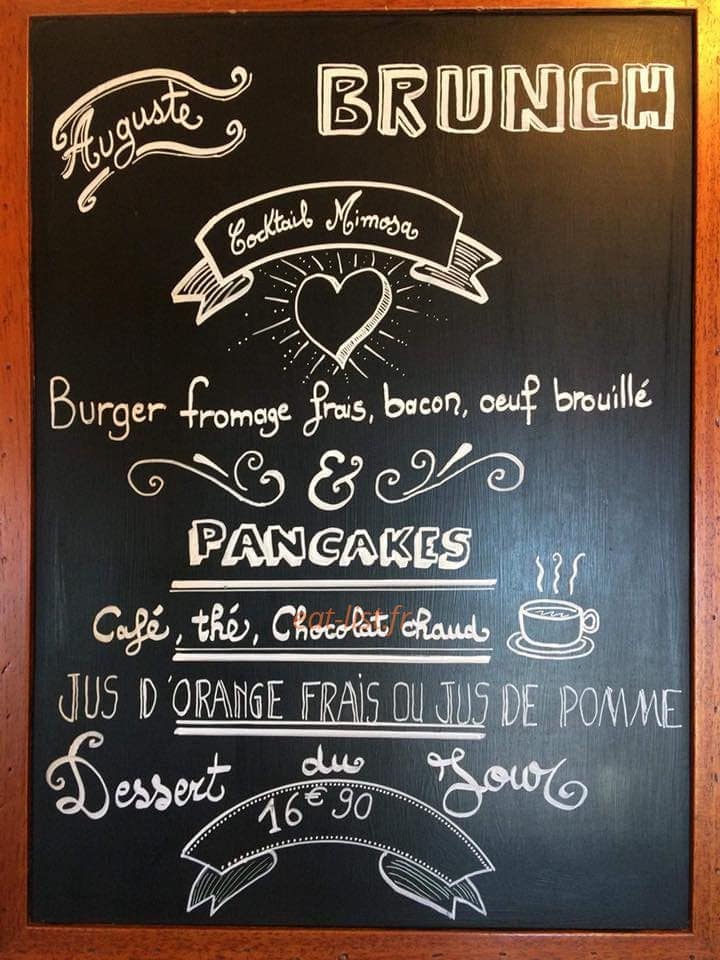 Auguste
BRUNCH
Cocktail Mimosa
Burger fromage frais, bacon, oeuf brouillé
&
PANCAKES
Café, thé, Chocolat chaud
eat-list.fr
JUS D'ORANGE FRAIS OU JUS DE POMME
Dessert du Jour
16€90